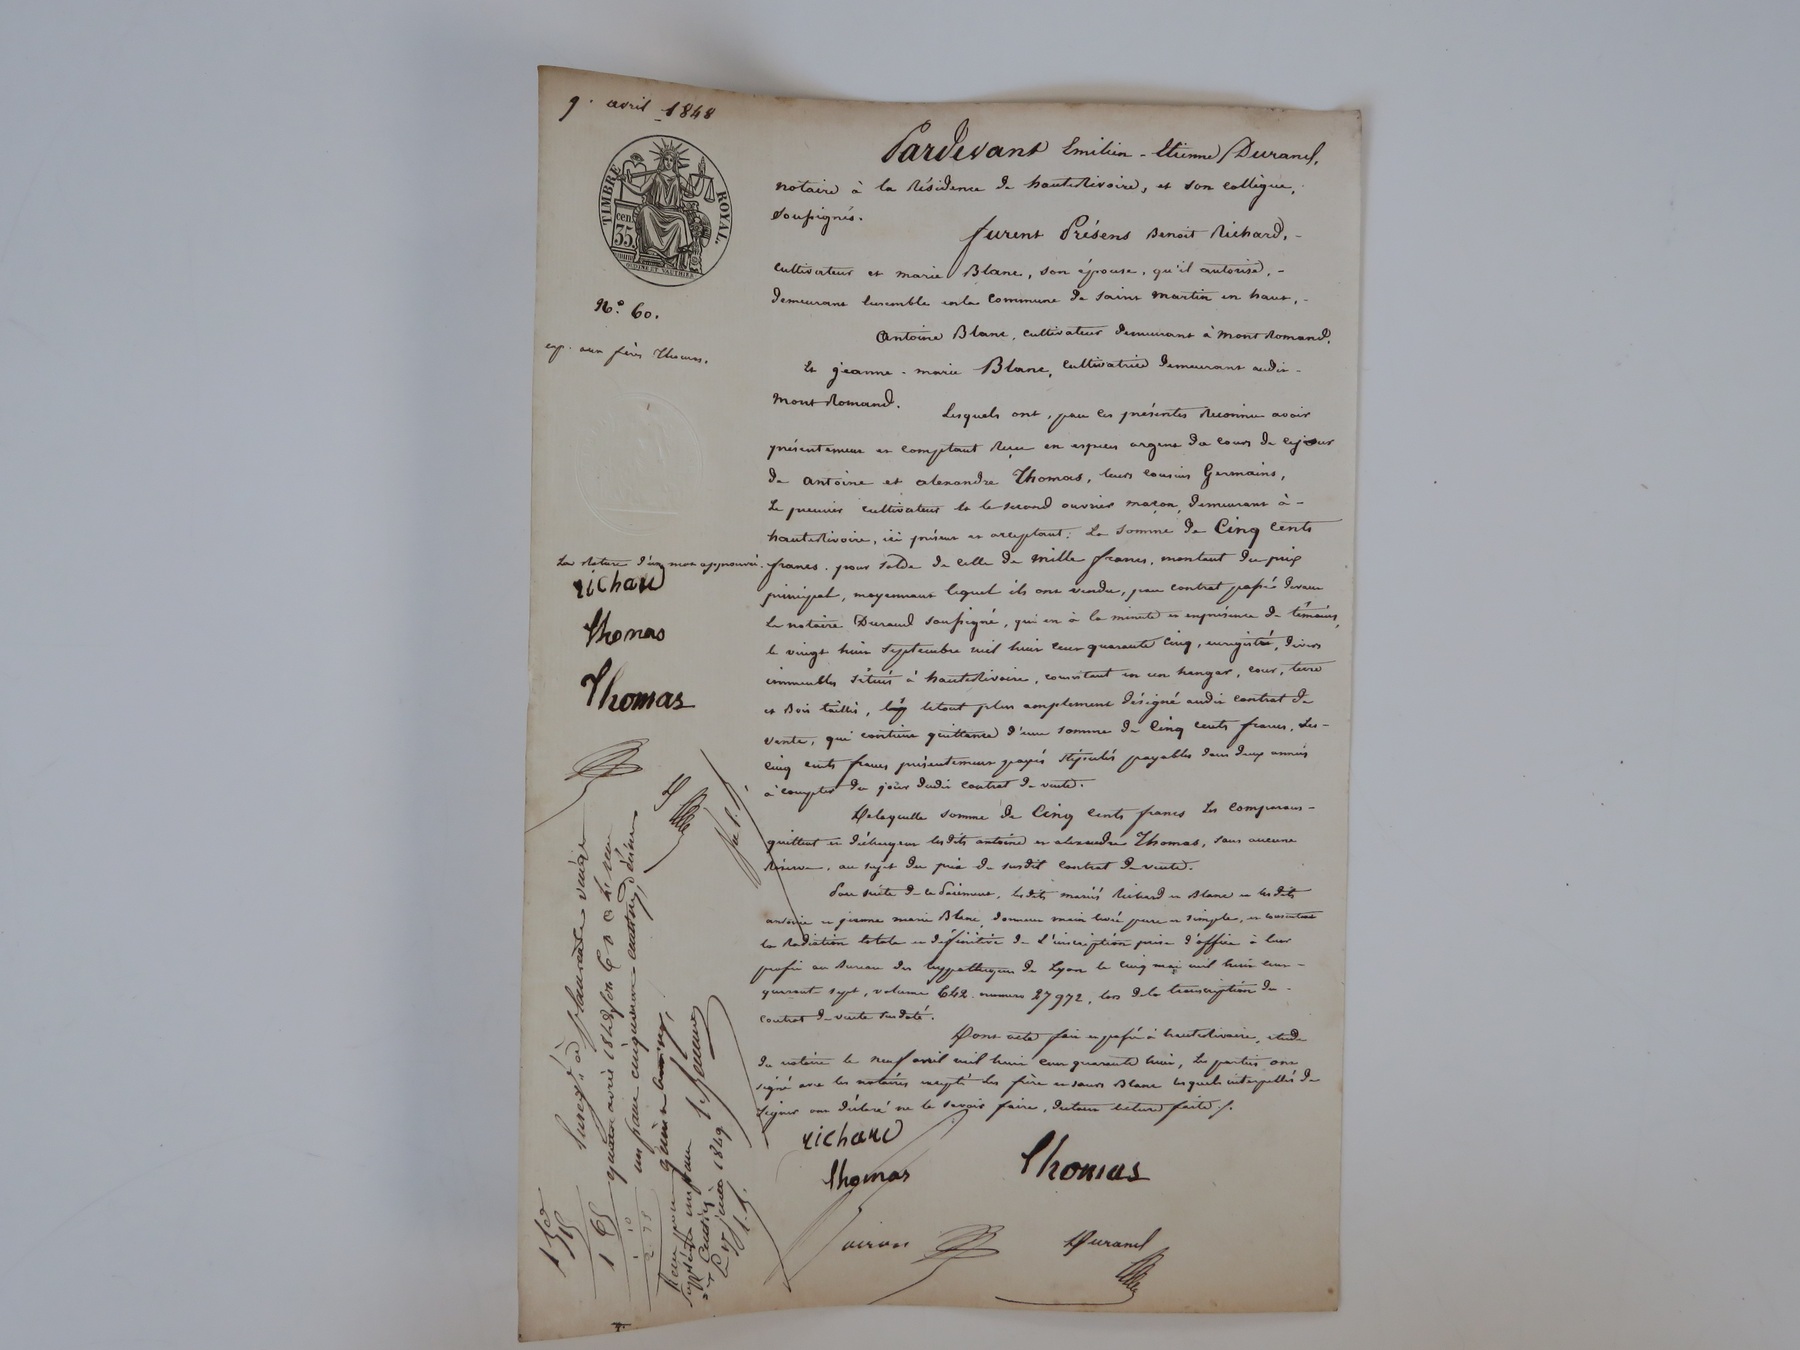 9. avril 1848
TIMBRE ROYAL.
cen.
35.
No. 60.
exp. aux frères Thomas.
Pardevant Emilien-Etienne Durand,
notaire à la Résidence de hauterivoire, et son collègue,
soussignés.
furent Présens Benoit Richard,
cultivateur et marie Blanc, son épouse, qu'il autorise,
demeurant Ensemble en la Commune de Saint Martin en haut,
Antoine Blanc, cultivateur demeurant à Mont Romand,
Et jeanne-marie Blanc, cultivatrice demeurant audit
Mont Romand.
Lesquels ont, par ces présentes Reconnu avoir
présentement et comptant Reçu en espèces argent du cours de ce jour
de Antoine et alexandre Thomas, leurs cousins Germains,
Le premier cultivateur Et le second ouvrier maçon, demeurant à
hauterivoire, ici présens et acceptant: La Somme de Cinq Cents
francs, pour Solde de celle de mille francs, montant du prix
principal, moyennant lequel ils ont vendu, par contrat passé devant
Le notaire Durand soussigné, qui en a la minute et en présence de témoins,
le vingt huit Septembre mil huit cent quarante cinq, enregistré, divers
immeubles situés à hauterivoire, consistant en un hangar, cour, terre
et Bois taillis, le tout plus amplement désigné audit contrat de
vente, qui contient quittance d'une somme de Cinq cents francs, Les
Cinq cents francs présentement payés Stipulés payables dans deux années
à compter du jour dudit contrat de vente.
De laquelle somme de Cinq cents francs Les Comparans
quittent et déchargent lesdits antoine et alexandre Thomas, sans aucune
Réserve, au sujet du prix du susdit contrat de vente.
Par suite de ce paiement, lesdits mariés Richard et Blanc et lesdits
antoine et jeanne marie Blanc, donnent main levée pure et simple, et consentent
la Radiation totale et définitive de l'inscription prise d'office à leur
profit au Bureau des hyppothèques de Lyon le cinq mai mil huit cent
quarante sept, volume 642 numéro 27972, lors de la transcription du
contrat de vente susdaté.
Dont acte fait et passé à hauterivoire, étude
du notaire le neuf avril mil huit cent quarante huit, Les parties ont
signé avec les notaires excepté Les frère et sœur Blanc lesquels interpellés de
Signer ont déclaré ne le savoir faire, du tout lecture faite./.
richard
Thomas
Thomas
Durand
La Rature d'un mot approuvée.
richard
Thomas
Thomas
Enregé. à St Laurent
quatre avril 1848 fol
un franc cinquante centimes, décime
quinze centimes,
1849
1 50
15
1 65